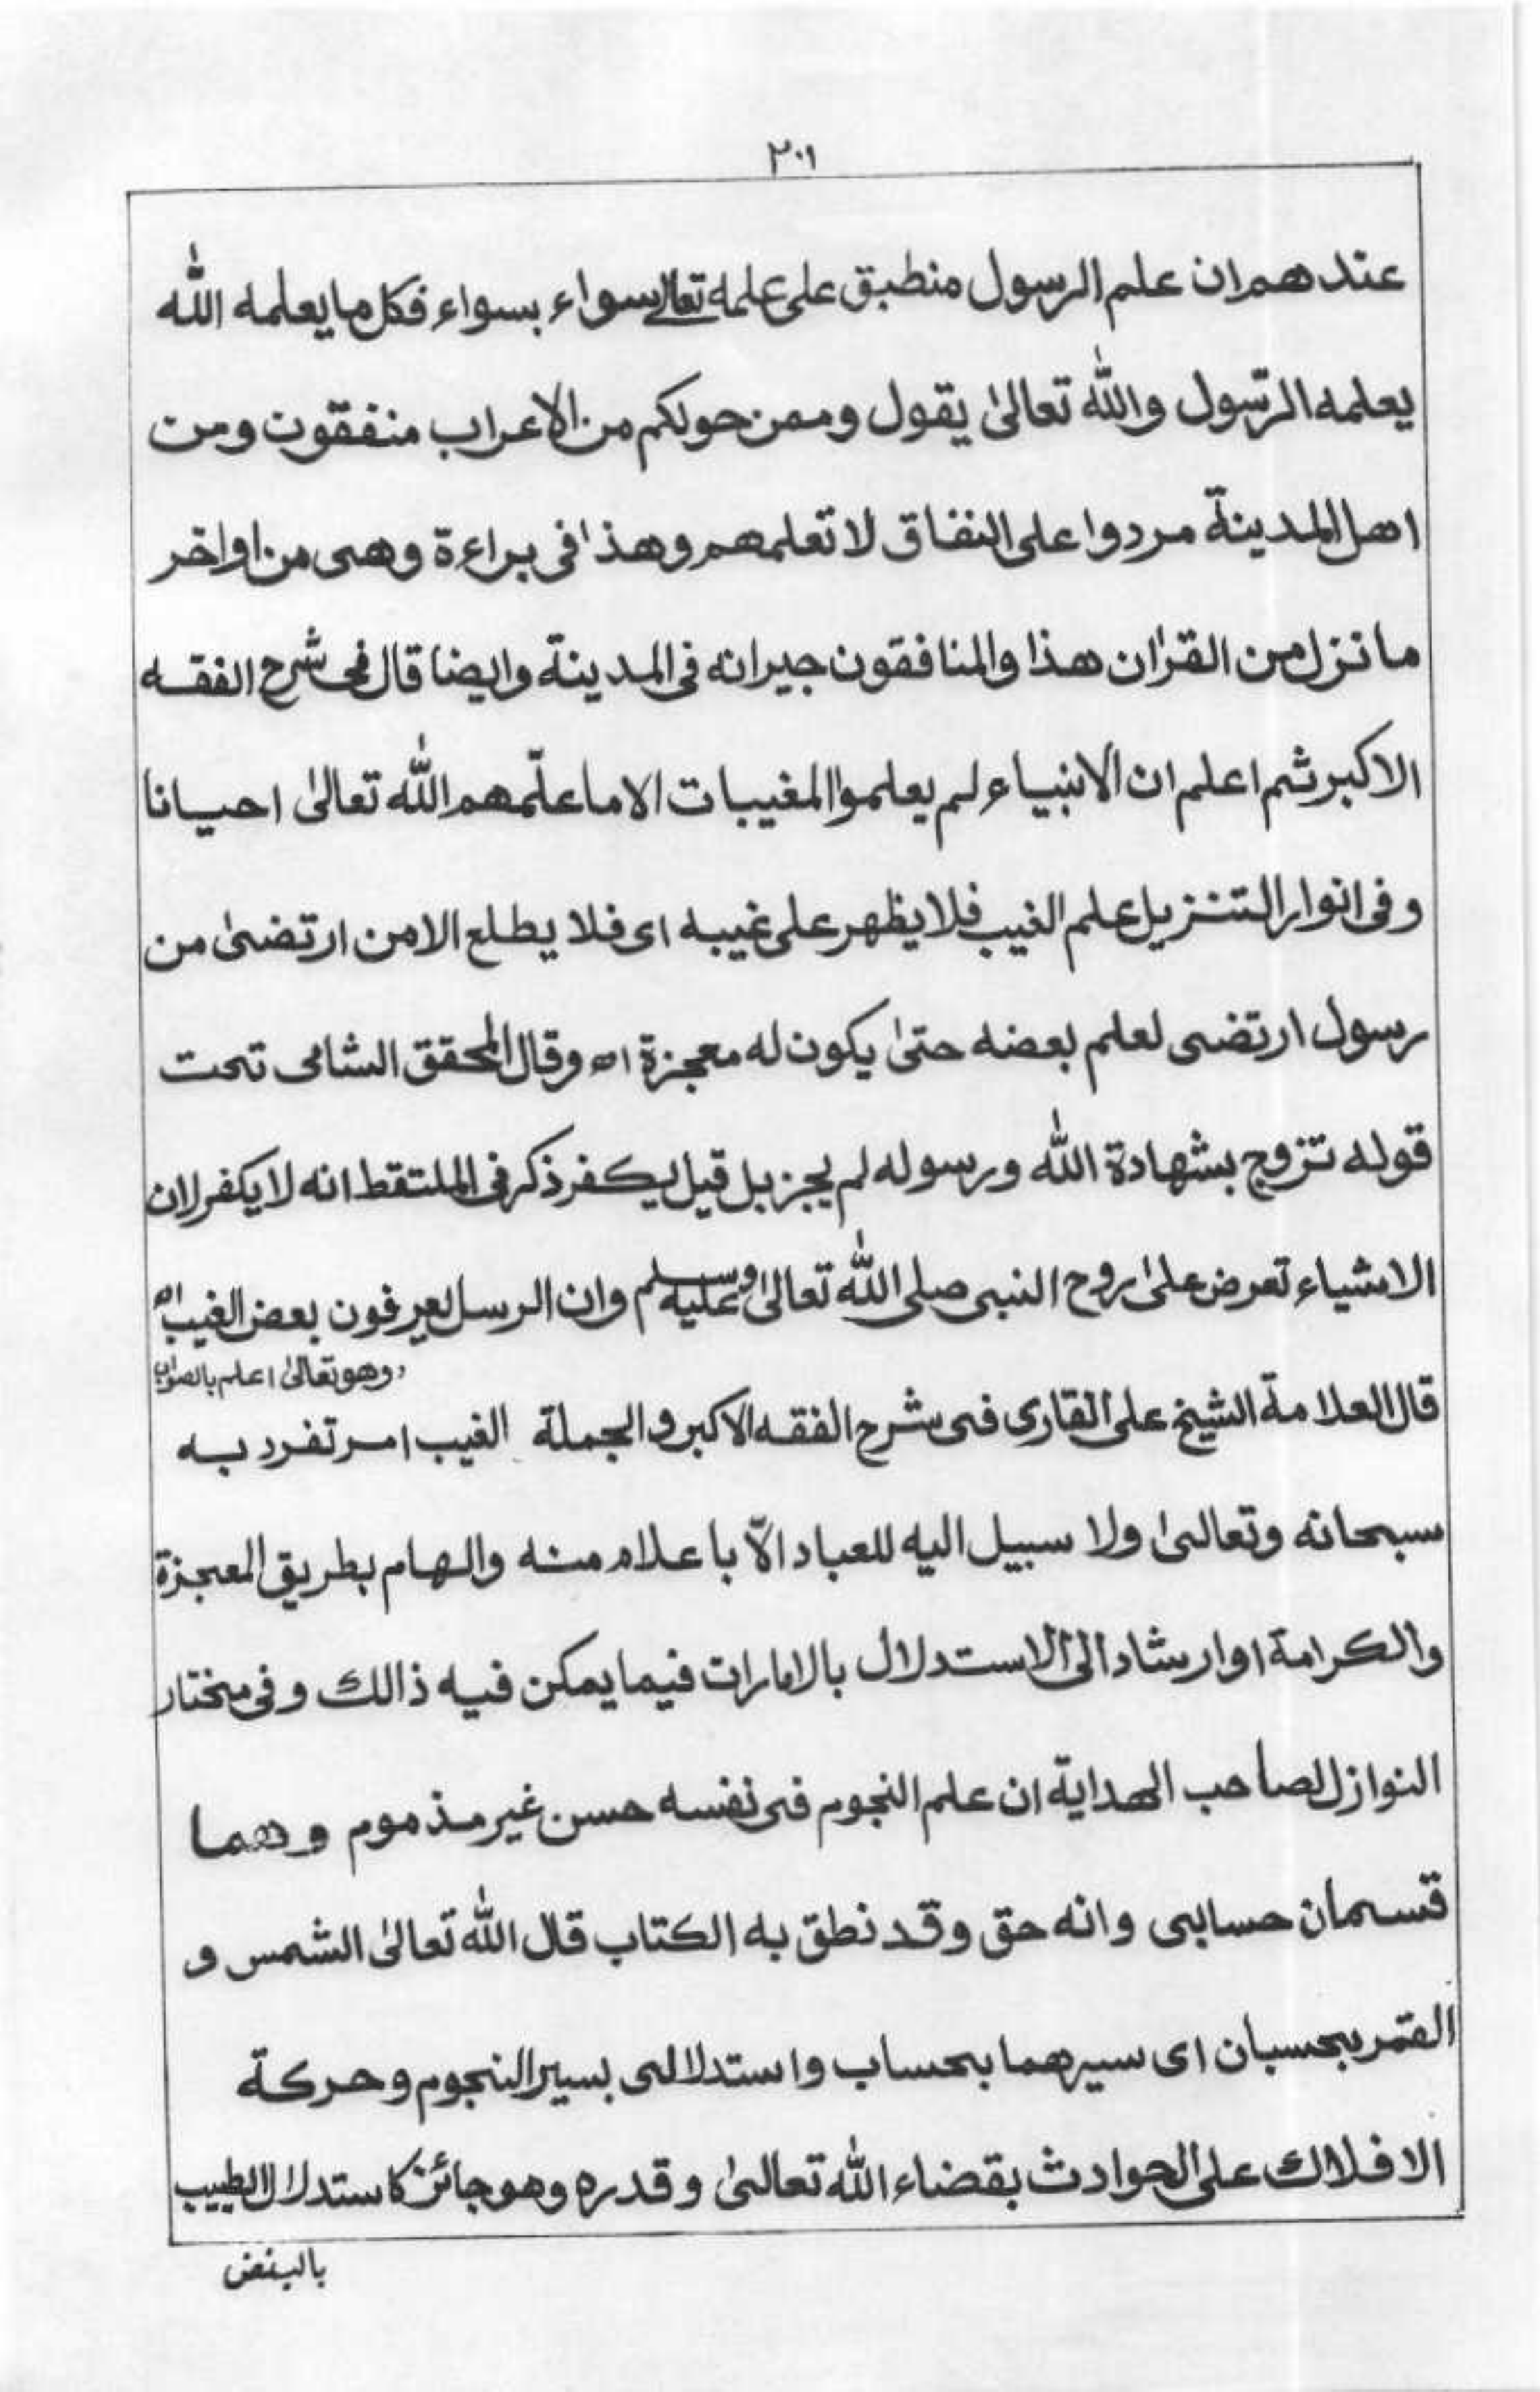 ٢٠١
عندهم ان علم الرسول منطبق على علمه تعالى سواء بسواء فكل ما يعلمه الله
يعلمه الرّسول والله تعالىٰ يقول وممن حولكم من الاعراب منفقون ومن
اهل المدينة مردوا على النفاق لا تعلمهم وهذا فى براءة وهى من اواخر
ما نزل من القراٰن هذا والمنافقون جيرانه فى المدينة وايضا قال فى شرح الفقه
الاكبر ثم اعلم ان الانبياء لم يعلموا المغيبات الا ما علّمهم الله تعالىٰ احيانا
وفى انوار التنزيل علم الغيب فلا يظهر على غيبه اى فلا يطلع الا من ارتضىٰ من
رسول ارتضى لعلم بعضه حتىٰ يكون له معجزة اه وقال المحقق الشامى تحت
قوله تزوج بشهادة الله ورسوله لم يجز بل قيل يكفر ذكر فى الملتقط انه لا يكفر لان
الاشياء تعرض علىٰ روح النبى صلى الله تعالىٰ عليه وسلم وان الرسل يعرفون بعض الغيب اه
وهو تعالىٰ اعلم بالصواب
قال العلامة الشيخ على القارى فى شرح الفقه الاكبر و الجملة الغيب امر تفرد به
سبحانه وتعالىٰ ولا سبيل اليه للعباد الّا باعلام منه والهام بطريق المعجزة
والكرامة او ارشاد الى الاستدلال بالامارات فيما يمكن فيه ذالك وفى مختار
النوازل لصاحب الهداية ان علم النجوم فى نفسه حسن غير مذموم وهما
قسمان حسابى وانه حق وقد نطق به الكتاب قال الله تعالىٰ الشمس و
القمر بحسبان اى سيرهما بحساب واستدلالى بسير النجوم وحركة
الافلاك على الحوادث بقضاء الله تعالىٰ وقدره وهو جائز كاستدلال الطبيب
بالبنض